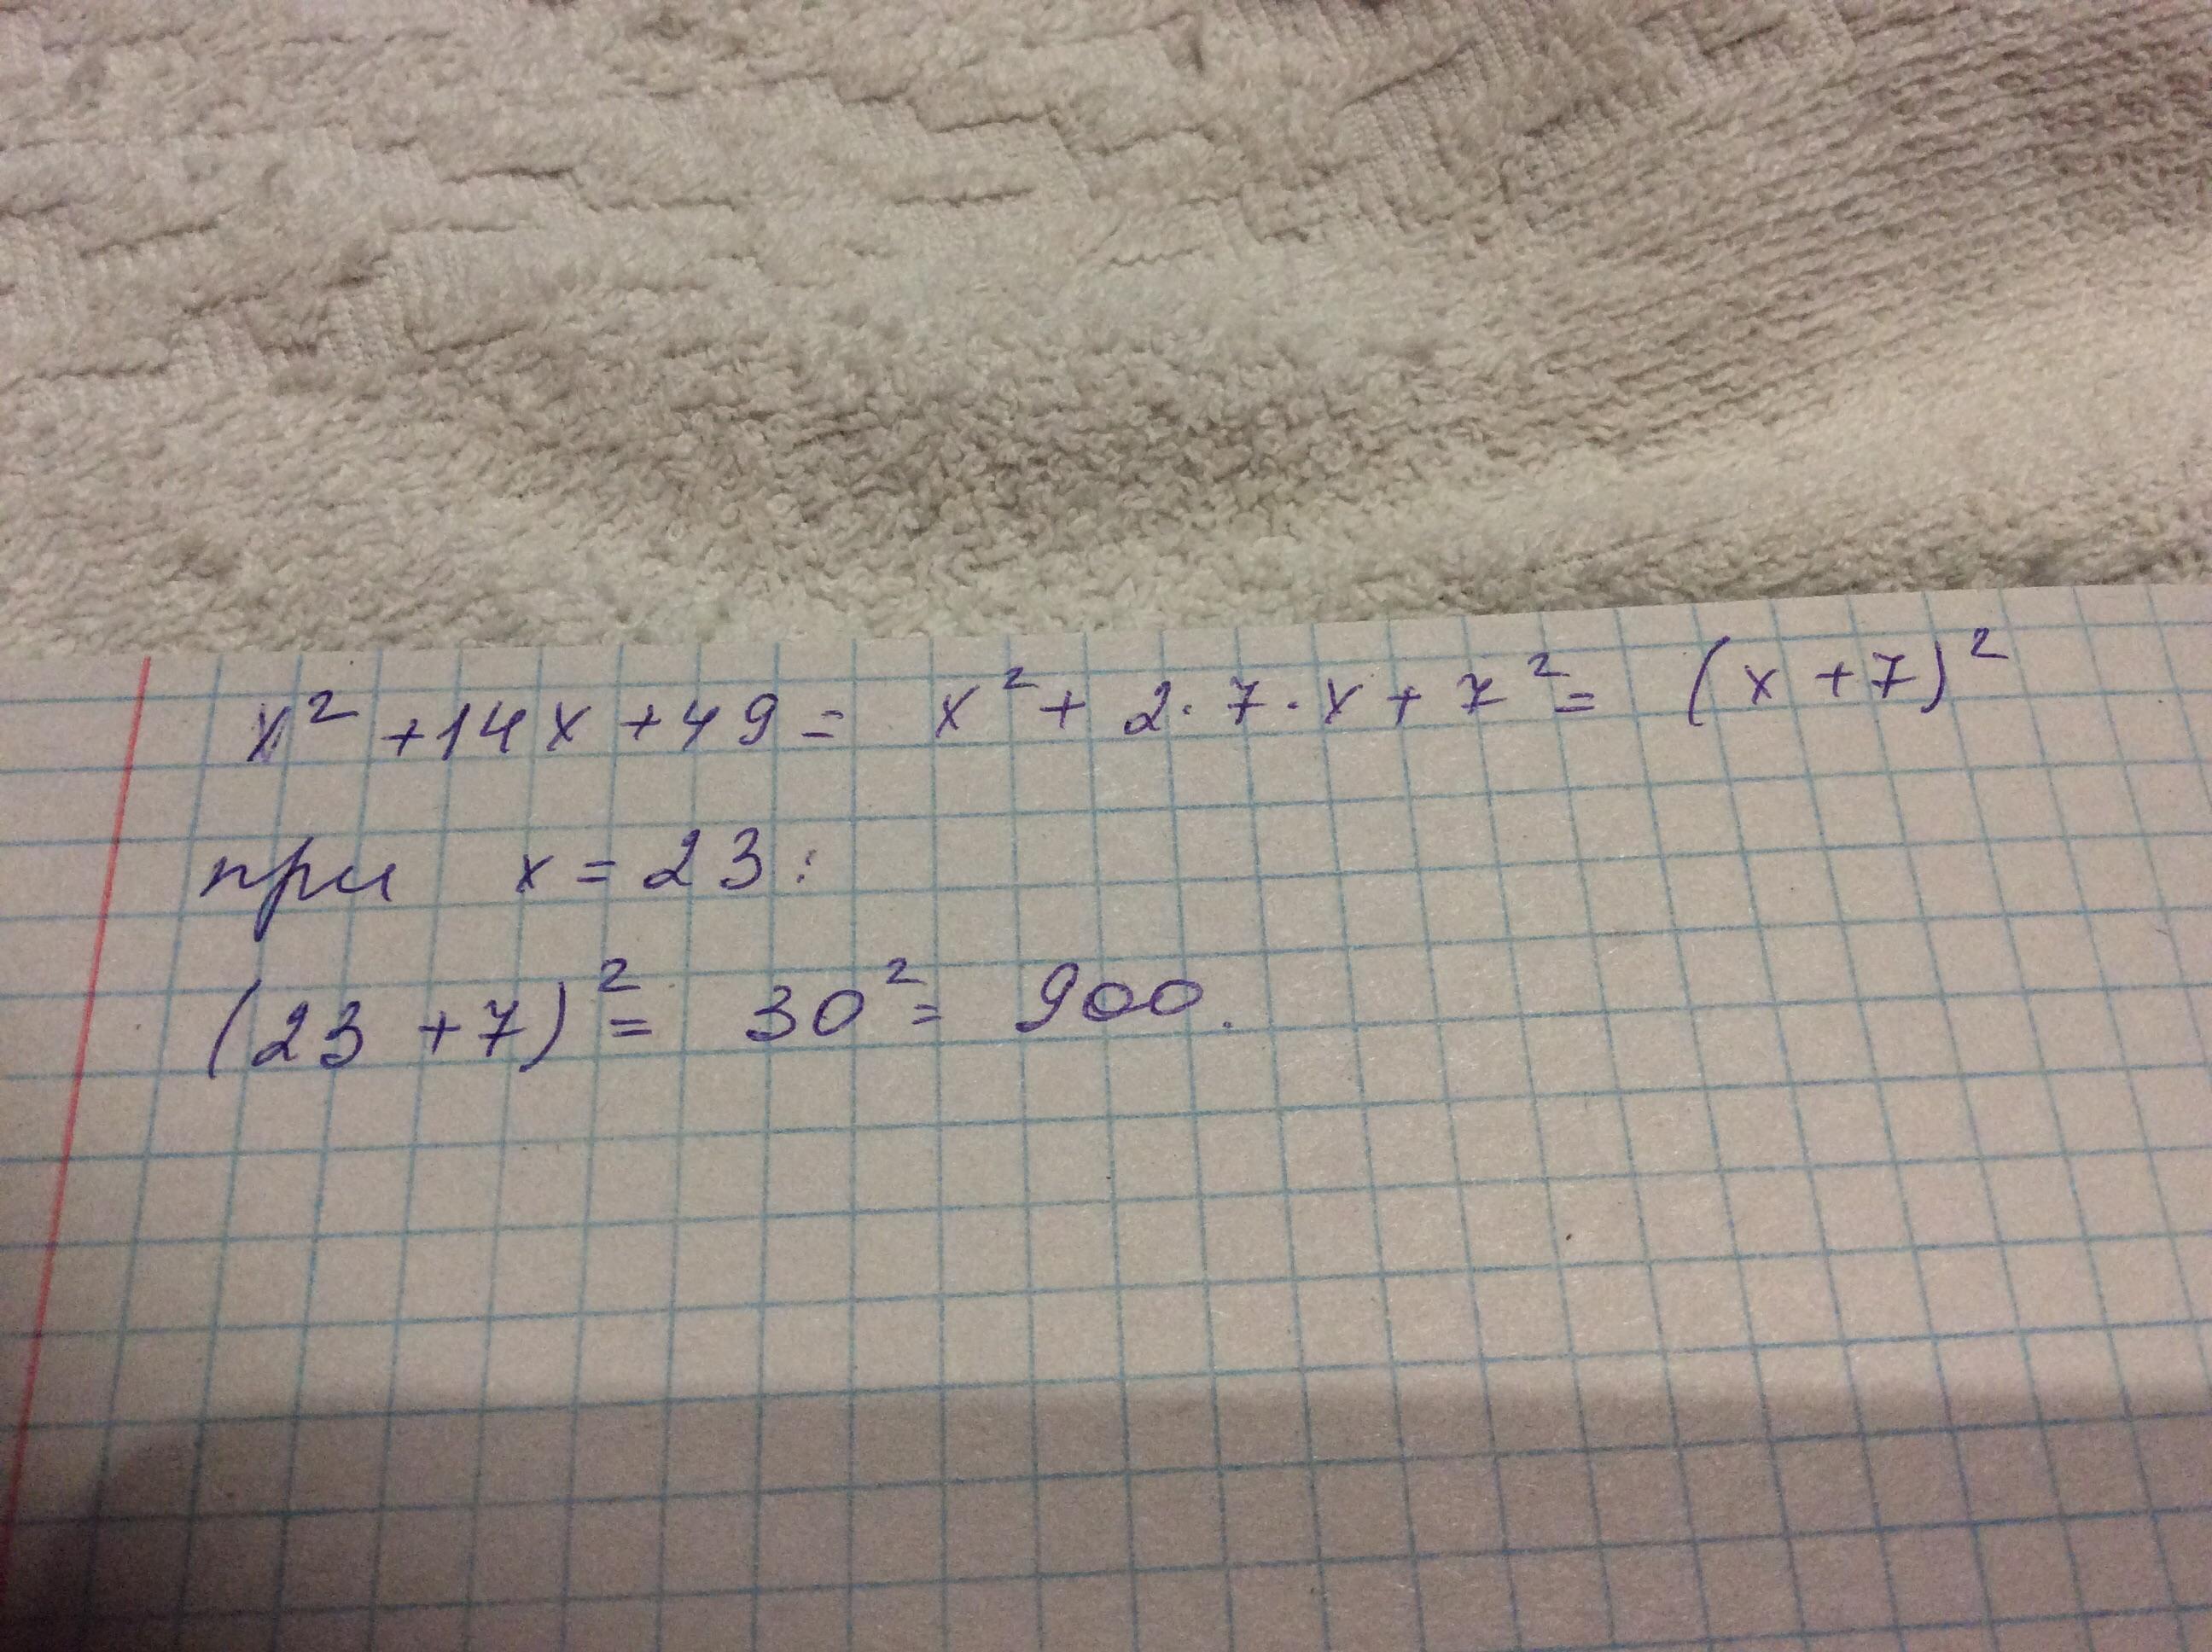 x² + 14x + 49 = x² + 2 · 7 · x + 7² = (x + 7)²
при x = 23:
(23 + 7)² = 30² = 900.